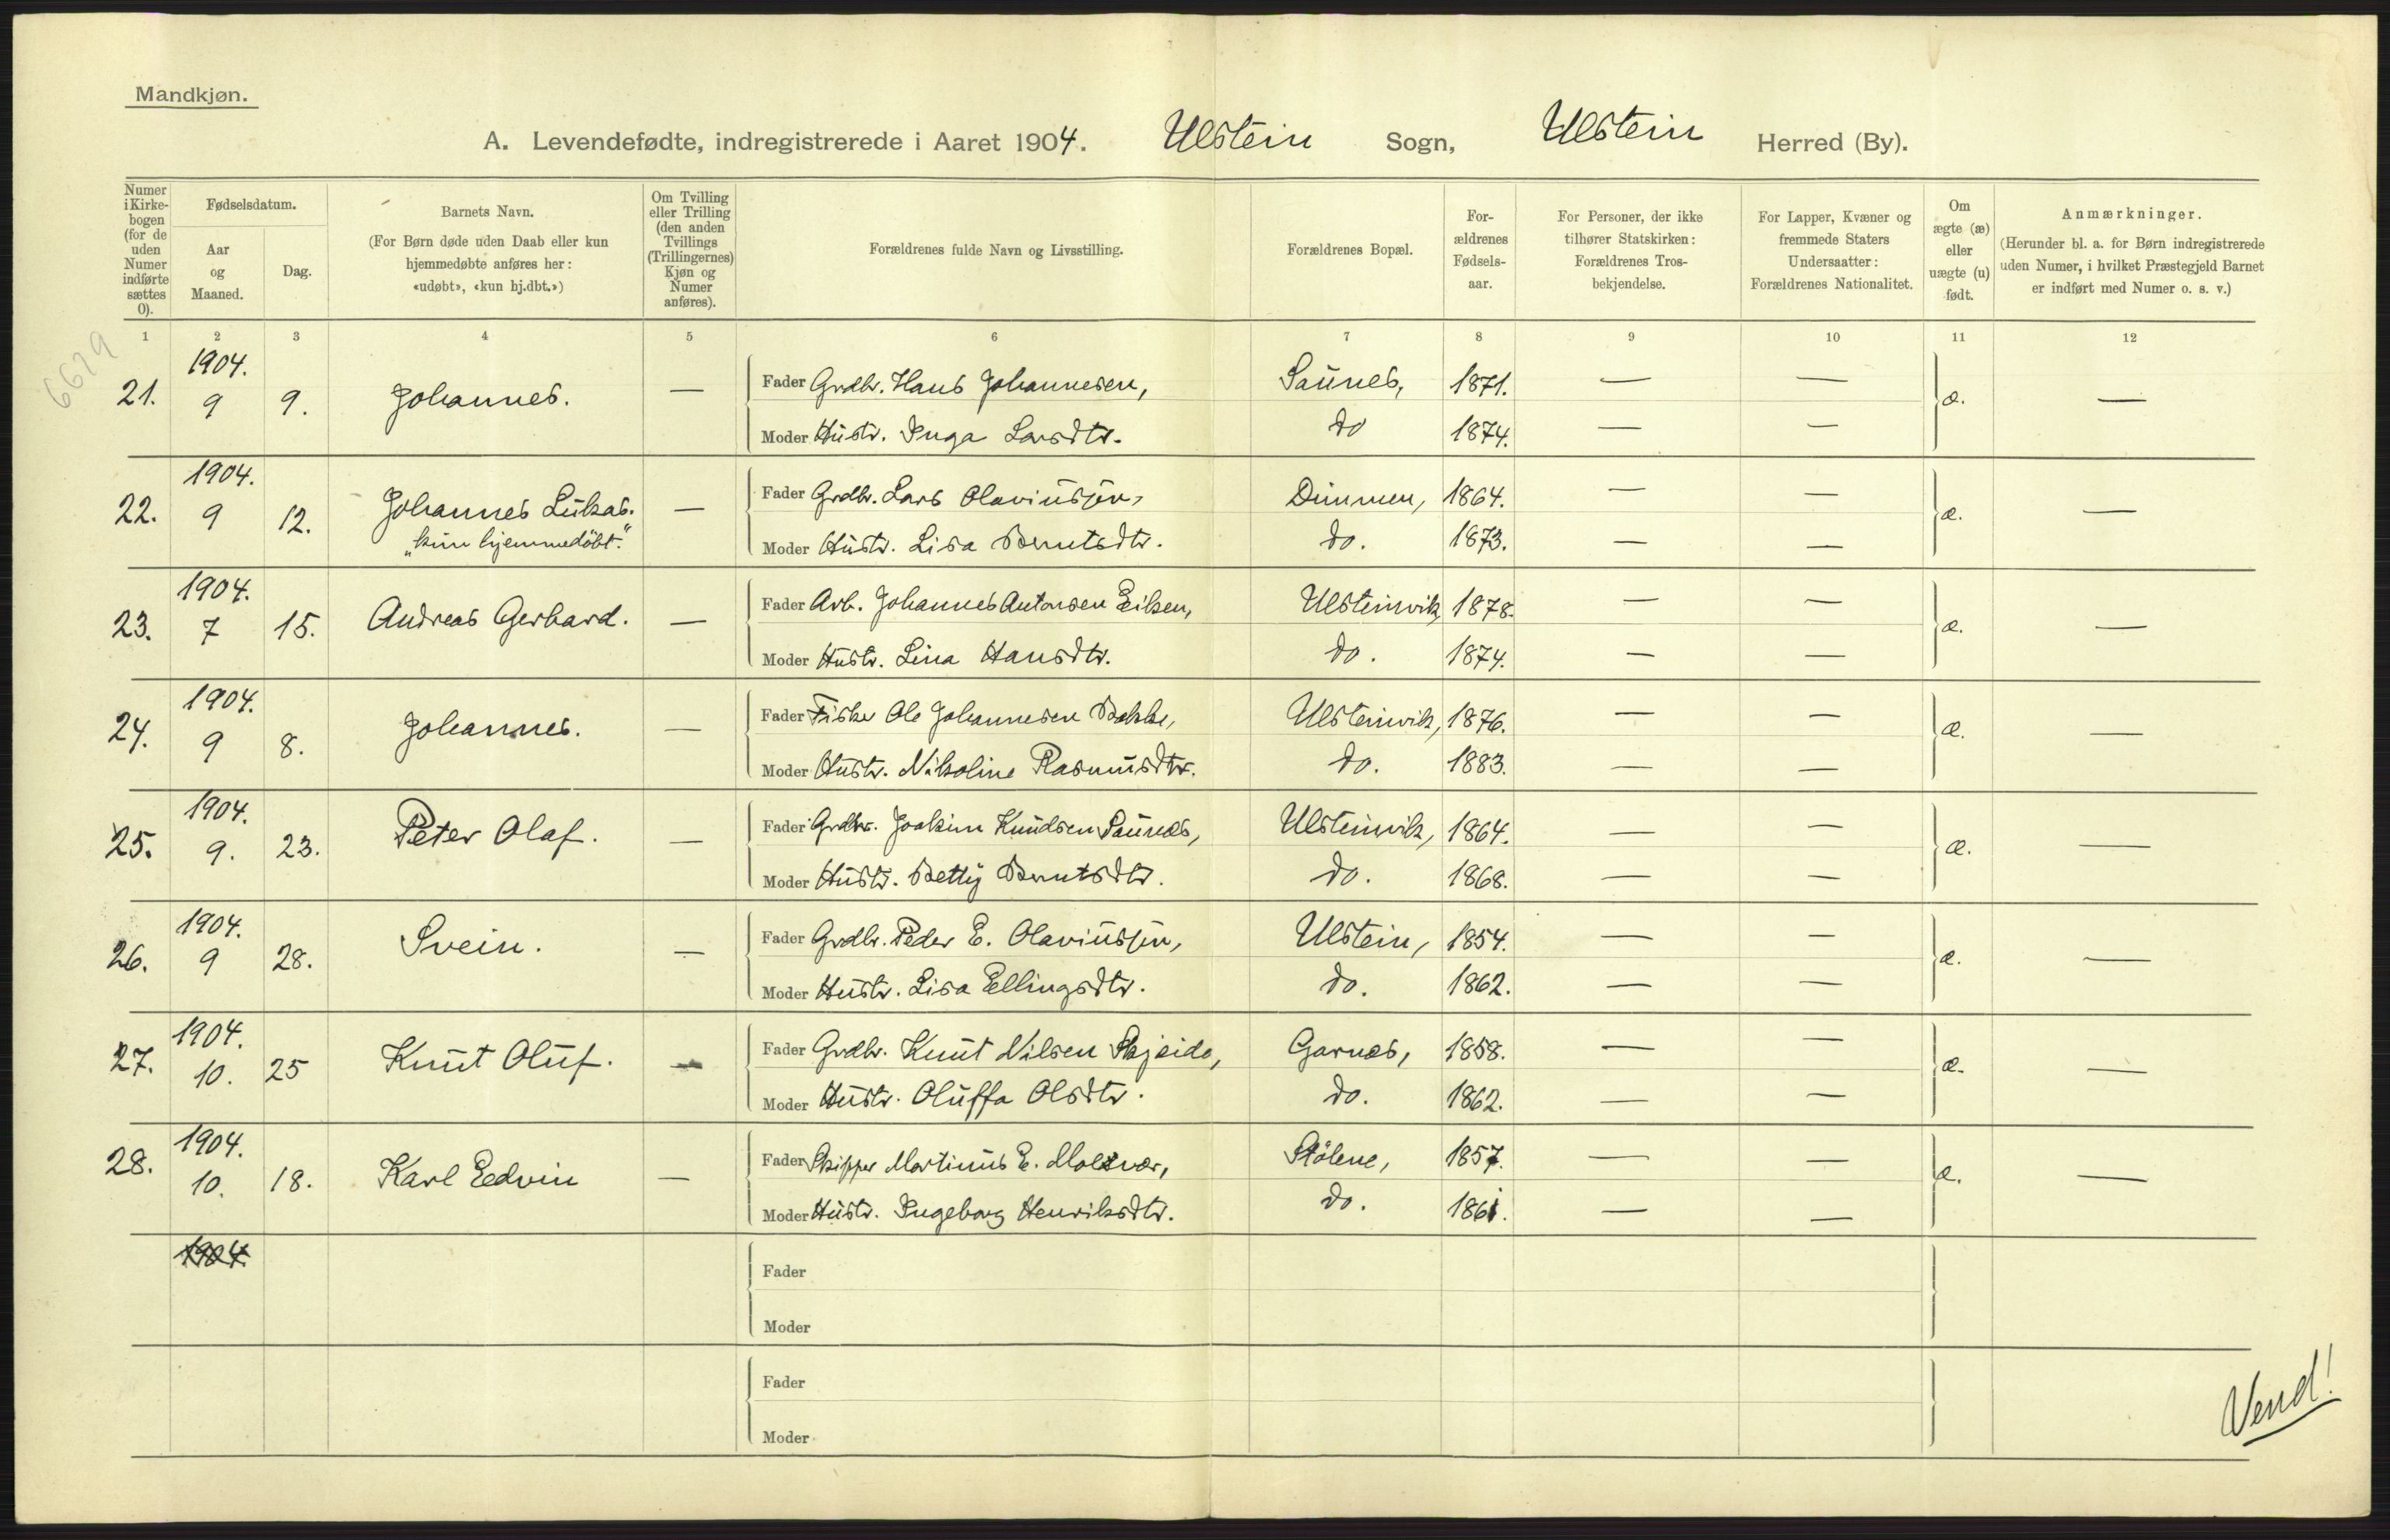 Mandkjøn.
A. Levendefødte, indregistrerede i Aaret 1904. Ulstein Sogn, Ulstein Herred (By).
Numer i Kirke-bogen (for de uden Numer indførte sættes 0).
Fødselsdatum.
Aar og Maaned.
Dag.
Barnets Navn.
(For Børn døde uden Daab eller kun hjemmedøbte anføres her: «udøbt», «kun hj.dbt.»)
Om Tvilling eller Trilling (den anden Tvillings (Trillingernes) Kjøn og Numer anføres).
Forældrenes fulde Navn og Livsstilling.
Forældrenes Bopæl.
For-ældrenes Fødsels-aar.
For Personer, der ikke tilhører Statskirken: Forældrenes Tros-bekjendelse.
For Lapper, Kvæner og fremmede Staters Undersaatter: Forældrenes Nationalitet.
Om ægte (æ) eller uægte (u) født.
Anmærkninger.
(Herunder bl. a. for Børn indregistrerede uden Numer, i hvilket Præstegjeld Barnet er indført med Numer o. s. v.)
1 2 3 4 5 6 7 8 9 10 11 12
21. 1904. 9 9. Johannes. — Fader Grdbr. Hans Johannesen, Saunes, 1871. — — æ. —
Moder Hustr. Inga Larsdtr. do 1874. — —
22. 1904. 9 12. Johannes Lukas. — Fader Grdbr. Lars Olaviussøn, Dimmen, 1864. — — æ. —
„kun hjemmedöbt.“ Moder Hustr. Lisa Berntsdtr. do. 1873. — —
23. 1904. 7 15. Andreas Gerhard. — Fader Arb. Johannes Antonsen Eiksen, Ulsteinvik, 1878. — — æ. —
Moder Hustr. Lina Hansdtr. do. 1874. — —
24. 1904. 9 8. Johannes. — Fader Fisker Ole Johannesen Bakke, Ulsteinvik, 1876. — — æ. —
Moder Hustr. Nikoline Rasmusdtr. do. 1883. — —
25. 1904. 9. 23. Peter Olaf. — Fader Grdbr. Joakim Knudsen Saunes, Ulsteinvik, 1864. — — æ. —
Moder Hustr. Betty Berntsdtr. do. 1868. — —
26. 1904. 9 28. Svein. — Fader Grdbr. Peder E. Olaviussøn, Ulstein, 1854. — — æ. —
Moder Hustr. Lisa Ellingsdtr. do. 1862. — —
27. 1904. 10. 25 Knut Oluf. — Fader Grdbr. Knut Nilsen Skjeide, Garnes, 1858. — — æ. —
Moder Hustr. Oluffa Olsdtr. do. 1862. — —
28. 1904. 10. 18. Karl Edvin — Fader Skipper Martinus E. Molvær, Stölene, 1857. — — æ. —
Moder Hustr. Ingeborg Henriksdtr. do. 1861. — —
1904. Fader
Moder
Fader
Moder
Vend!
6629